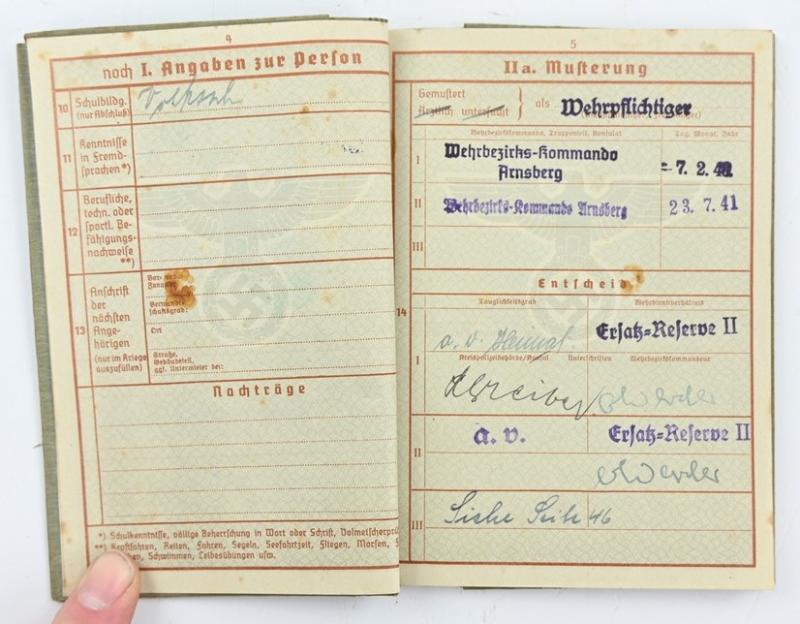 4
noch I. Angaben zur Person
10 Schulbildg.
(nur Abschluß)
Volkssch
11 Kenntnisse
in Fremd-
sprachen *)
12 Berufliche,
techn. oder
sportl. Be-
fähigungs-
nachweise
**)
13 Anschrift
der
nächsten
Ange-
hörigen
(nur im Kriege
auszufüllen)
Vor- und
Zuname:
Verwandt-
schaftsgrad:
Ort
Straße,
Gebäudeteil,
ggf. Untermieter bei:
Nachträge
*) Schulkenntnisse, völlige Beherrschung in Wort oder Schrift, Dolmetscherprü
**) Kraftfahren, Reiten, Fahren, Segeln, Seefahrtzeit, Fliegen, Morsen,
Schwimmen, Leibesübungen usw.
5
IIa. Musterung
Gemustert
Ärztlich untersucht
als Wehrpflichtiger
Wehrbezirkskommando, Truppenteil, Konsulat
Tag, Monat, Jahr
I Wehrbezirks-Kommando
Arnsberg
-7. 2. 41
II Wehrbezirks-Kommando Arnsberg 23. 7. 41
III
Entscheid
14
Tauglichkeitsgrad
Wehrdienstverhältnis
I a. v. Heimat. Ersatz-Reserve II
Kreispolizeibehörde/Konsul
Unterschriften
Wehrbezirkskommandeur
II a. v. Ersatz-Reserve II
III Siehe Seite 46